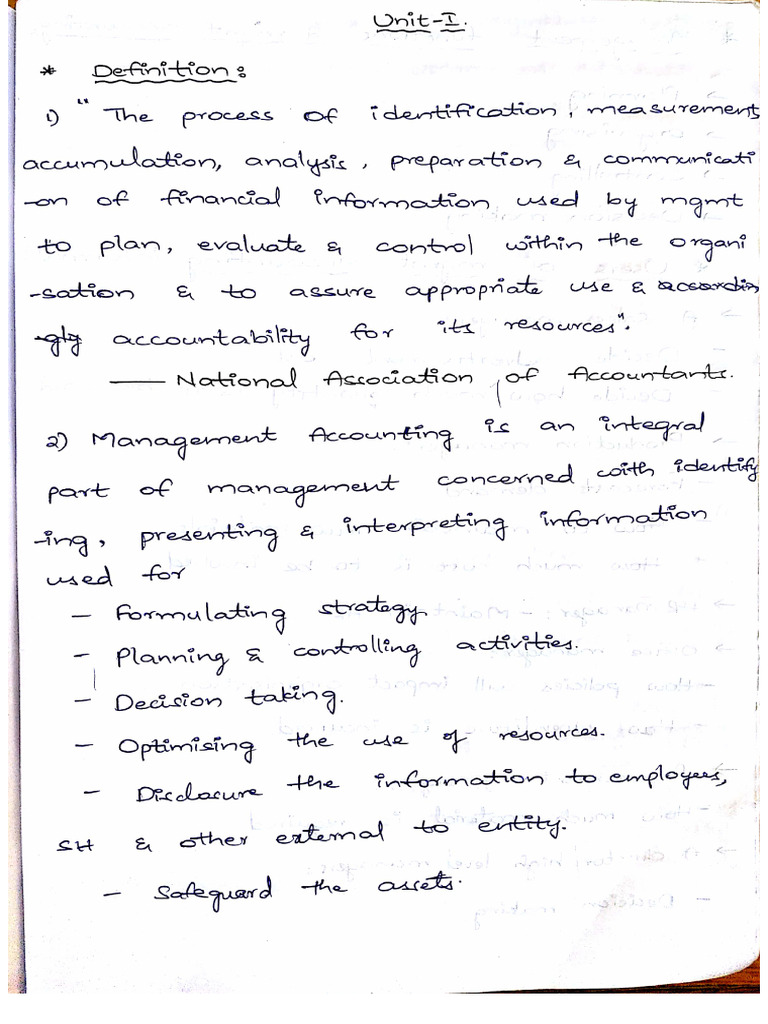 Unit-I.
* Definition:
1) "The process of identification, measurement
accumulation, analysis, preparation & communicati
-on of financial information used by mgmt
to plan, evaluate & control within the organi
-sation & to assure appropriate use & accordin
-gly accountability for its resources".
— National Association of Accountants.
2) Management Accounting is an integral
part of management concerned with identify
-ing, presenting & interpreting information
used for
- Formulating strategy.
- Planning & controlling activities.
- Decision taking.
- Optimising the use of resources.
- Disclosure the information to employees,
SH & other external to entity.
- Safeguard the assets.